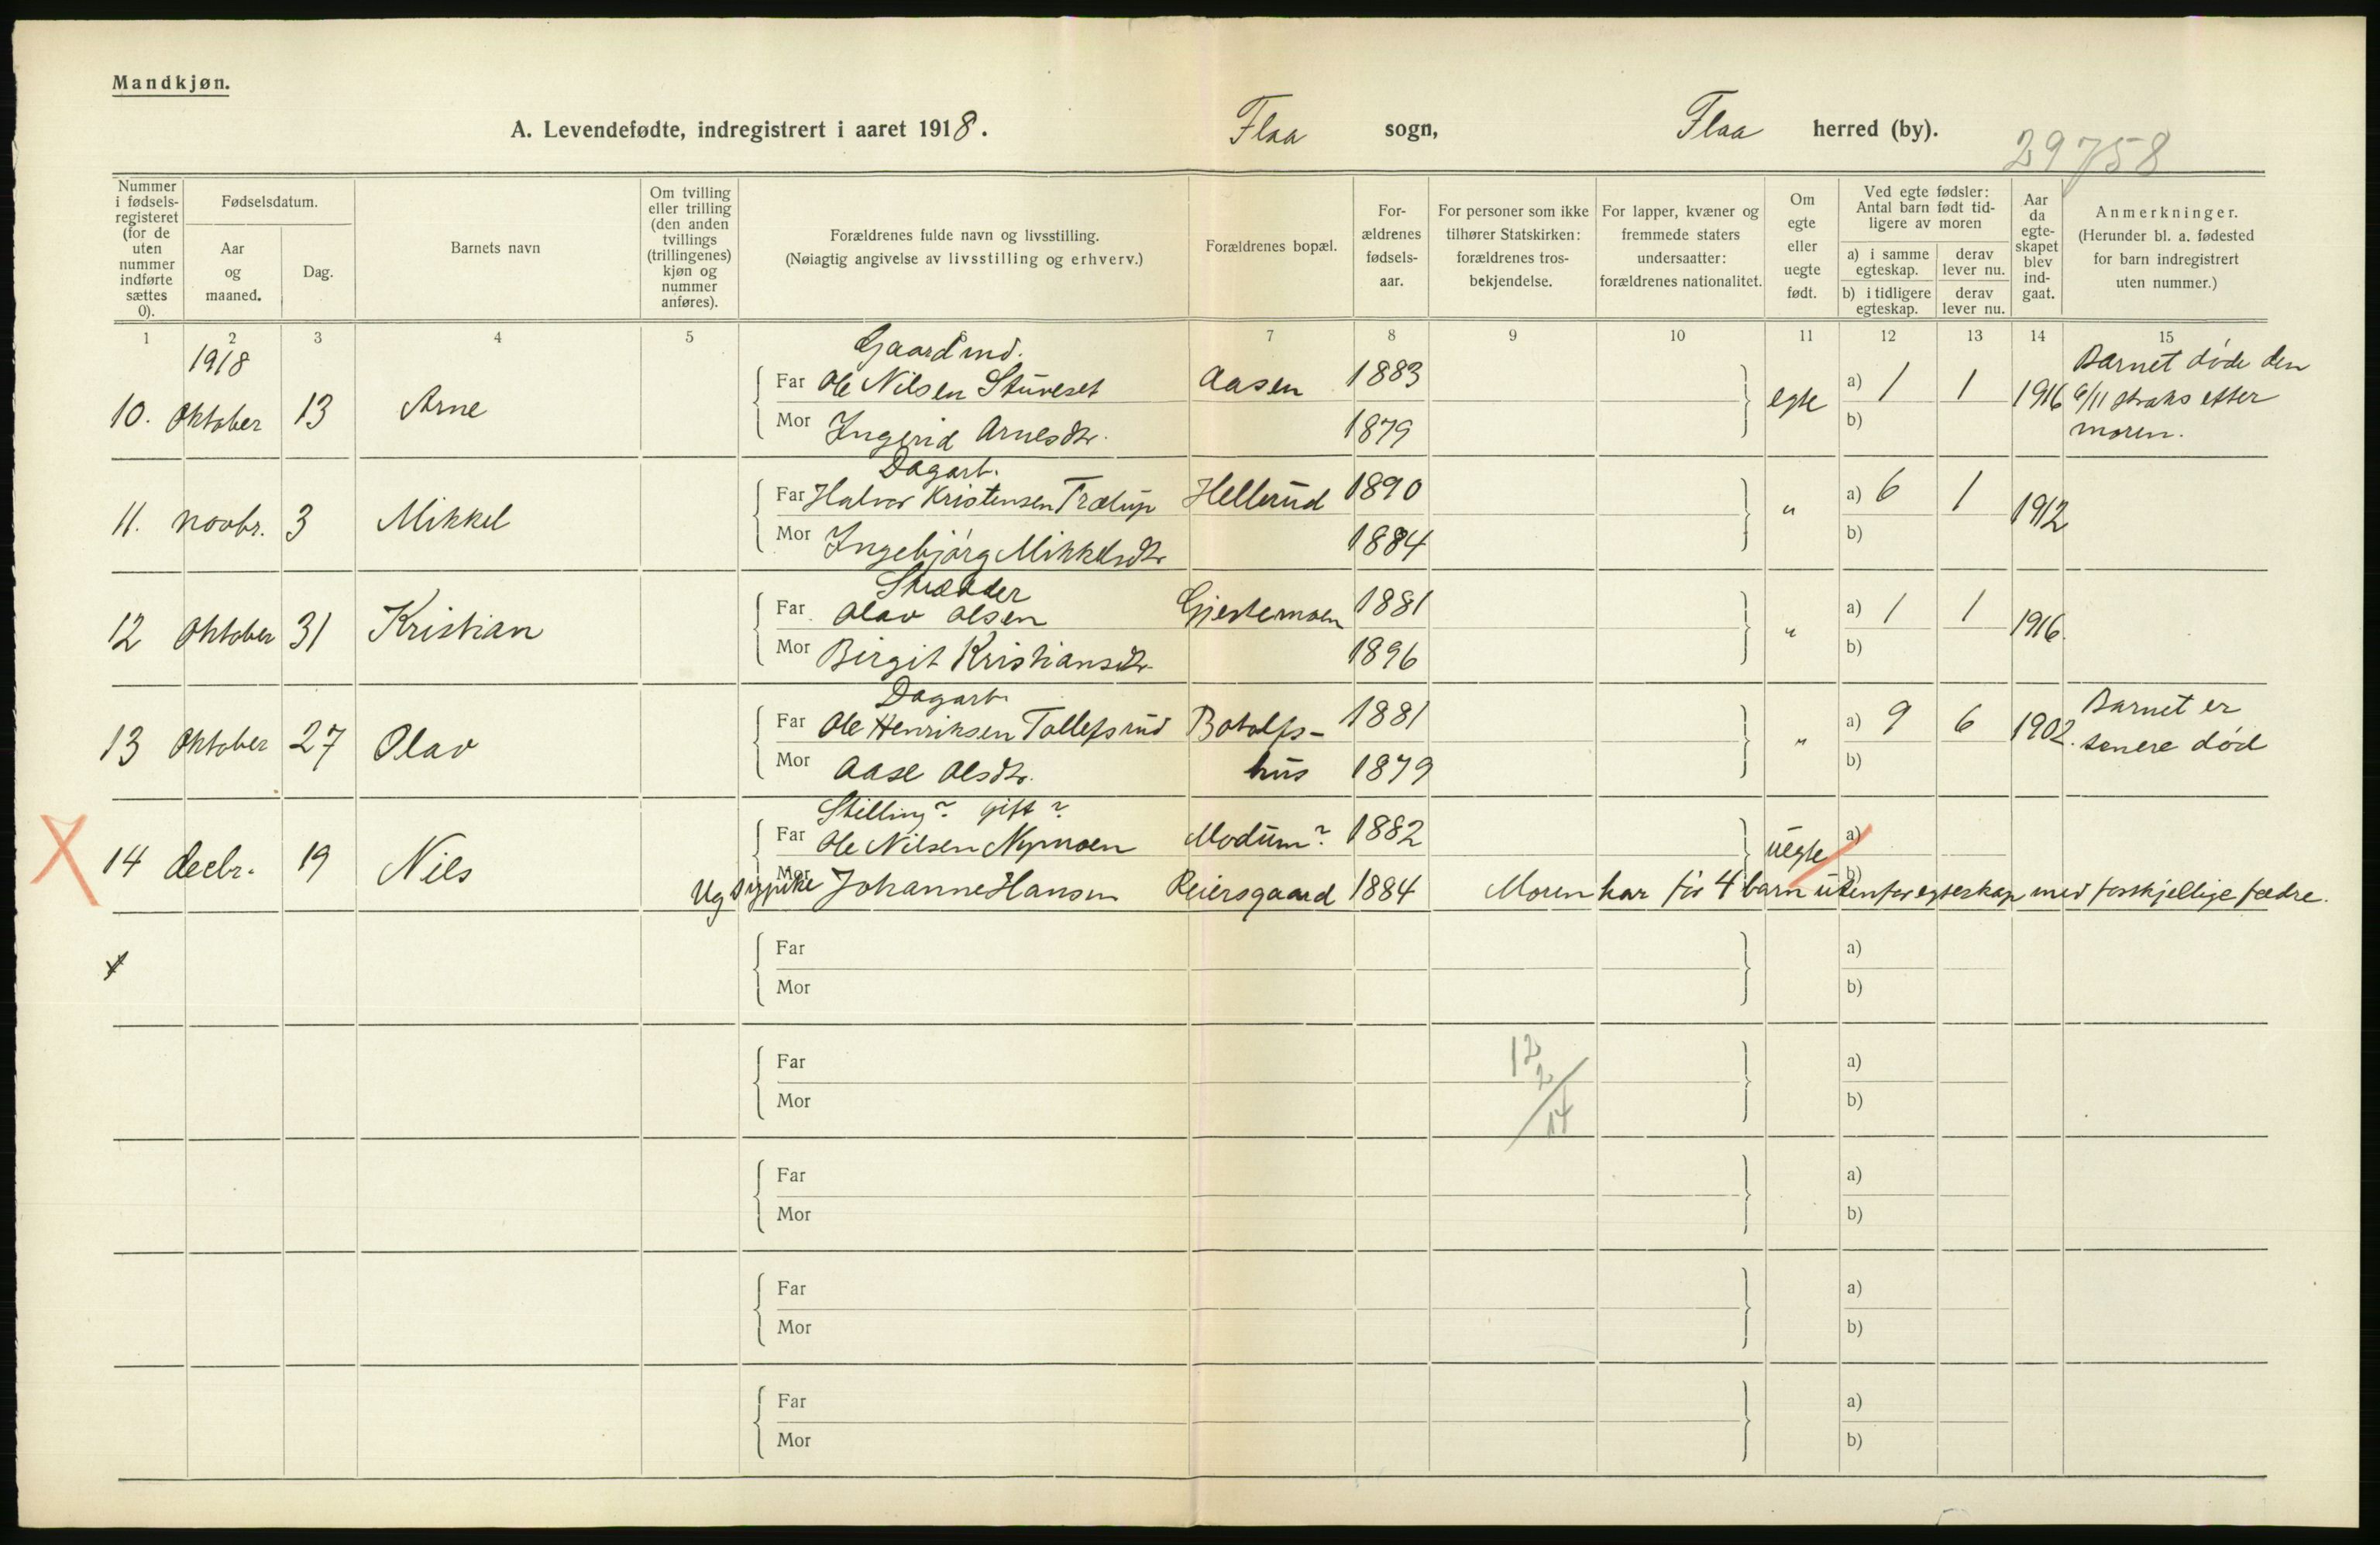 Mandkjøn.
A. Levendefødte, indregistrert i aaret 1918. Flaa sogn, Flaa herred (by).
29758
Nummer i fødsels-registeret (for de uten nummer indførte sættes 0).
Fødselsdatum.
Aar og maaned.
Dag.
Barnets navn
Om tvilling eller trilling (den anden tvillings (trillingenes) kjøn og nummer anføres).
Forældrenes fulde navn og livsstilling.
(Nøiagtig angivelse av livsstilling og erhverv.)
Forældrenes bopæl.
For-ældrenes fødsels-aar.
For personer som ikke tilhører Statskirken: forældrenes tros-bekjendelse.
For lapper, kvæner og fremmede staters undersaatter: forældrenes nationalitet.
Om egte eller uegte født.
Ved egte fødsler: Antal barn født tid-ligere av moren
a) i samme egteskap.
derav lever nu.
b) i tidligere egteskap.
derav lever nu.
Aar da egte-skapet blev ind-gaat.
Anmerkninger.
(Herunder bl. a. fødested for barn indregistrert uten nummer.)
1 2 3 4 5 6 7 8 9 10 11 12 13 14 15
1918 Gaardmd. Barnet døde den
Far Ole Nilsen Stuveset Aasen 1883 a) 1 1
10. Oktober 13 Arne egte 1916 6/11 straks efter
Mor Ingerid Arnesdtr. 1879 b) moren.
Dagarb.
Far Halvor Kristensen Trælup Hellerud 1890 a) 6 1
11. novbr. 3 Mikkel " 1912
Mor Ingebjørg Mikkelsdtr 1884 b)
Skrædder
Far Olav Olsen Gjestemoen 1881 a) 1 1
12 Oktober 31 Kristian " 1916.
Mor Birgit Kristiansdtr. 1896 b)
Dagarb. Barnet er
Far Ole Henriksen Tollefsrud Botolfs- 1881 a) 9 6
13 Oktober 27 Olav " 1902. senere død
Mor Aase Olsdtr. hus 1879 b)
Stilling? gift?
Far Ole Nilsen Nymoen Modum? 1882 a)
14 decbr. 19 Nils uegte
Mor Ug pike Johanne Hansen Reiersgaard 1884 Moren har før 4 barn utenfor egteskap med forskjellige fædre. b)
Far a)
Mor b)
Far a)
12
2
14
Mor b)
Far a)
Mor b)
Far a)
Mor b)
Far a)
Mor b)